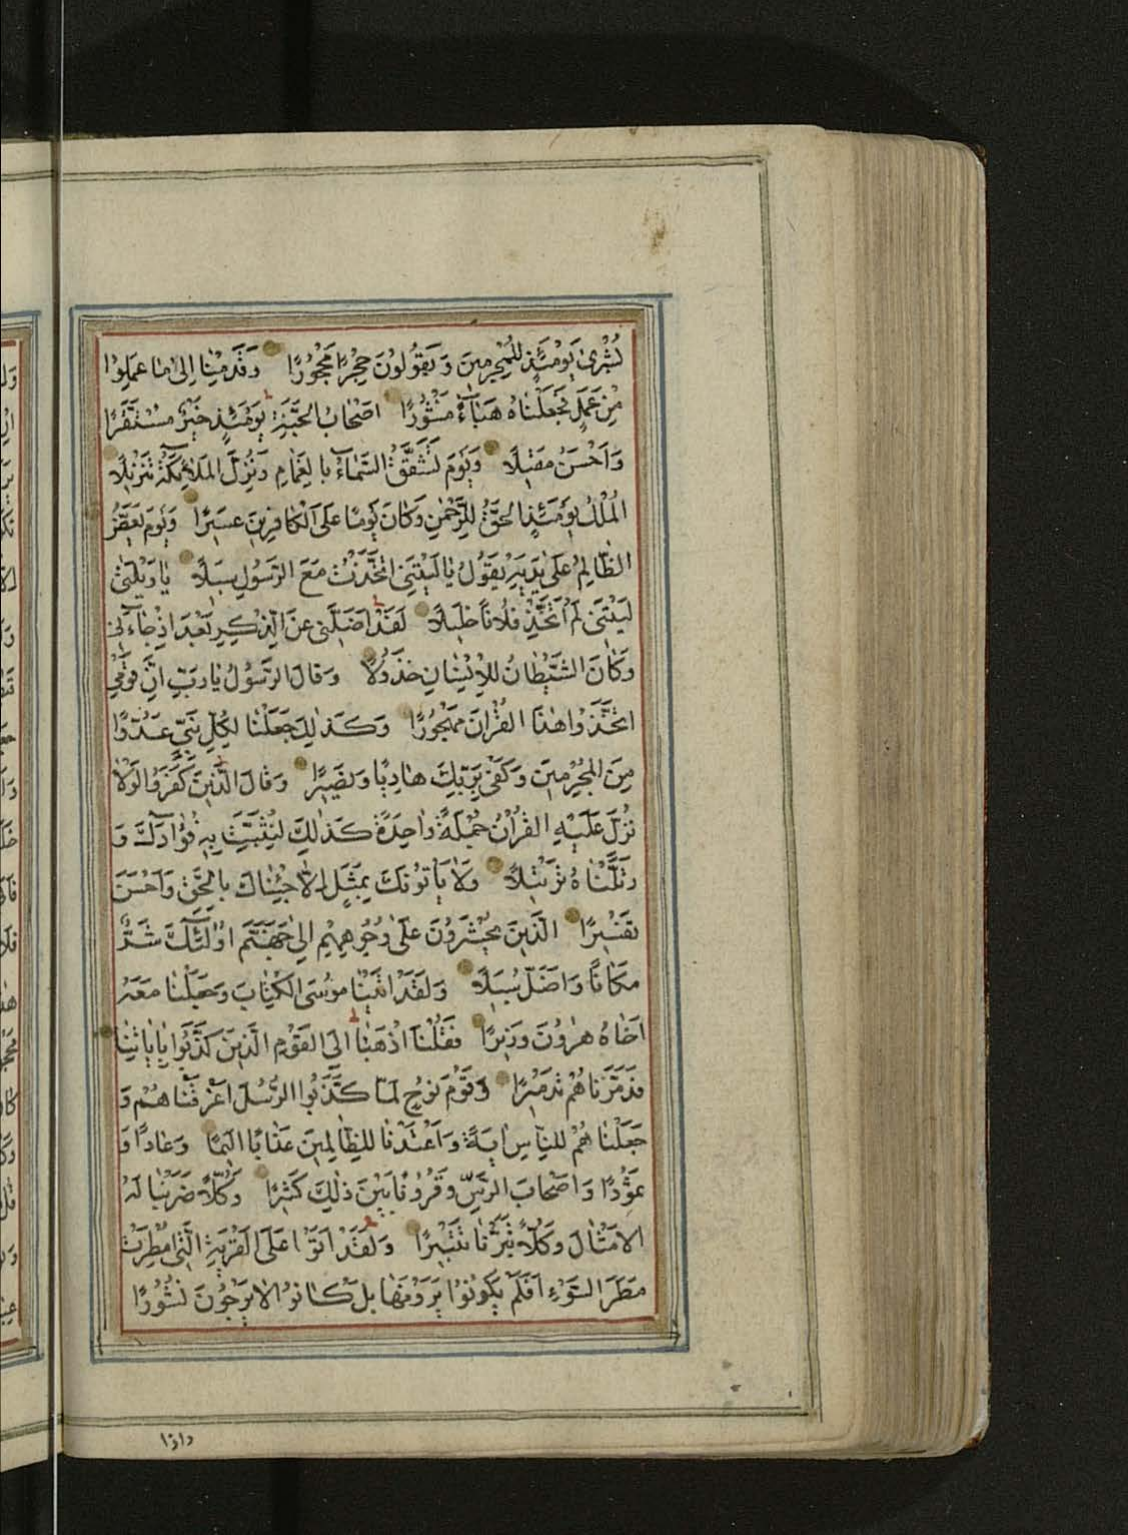 بُشْرىٰ يَوْمَئِذٍ لِلْمُجْرِمينَ وَ يَقُولُونَ حِجْرًا مَحْجُورًا وَقَدِمْنٰا اِلىٰ مٰا عَمِلُوا
مِنْ عَمَلٍ فَجَعَلْنٰاهُ هَبٰاءً مَنْثُورًا اَصْحٰابُ الْجَنَّةِ يَوْمَئِذٍ خَيْرٌ مُسْتَقَرًّا
وَ اَحْسَنُ مَقيلًا وَ يَوْمَ تَشَقَّقُ السَّمٰاءُ بِالْغَمٰامِ وَ نُزِّلَ الْمَلٰئِكَةُ تَنْزيلًا
اَلْمُلْكُ يَوْمَئِذٍ الْحَقُّ لِلرَّحْمٰنِ وَ كٰانَ يَوْمًا عَلَى الْكٰافِرينَ عَسيرًا وَ يَوْمَ يَعَضُّ
الظّٰالِمُ عَلىٰ يَدَيْهِ يَقُولُ يٰا لَيْتَنِى اتَّخَذْتُ مَعَ الرَّسُولِ سَبيلًا يٰا وَيْلَتىٰ
لَيْتَنى لَمْ اَتَّخِذْ فُلٰانًا خَليلًا لَقَدْ اَضَلَّنى عَنِ الذِّكْرِ بَعْدَ اِذْ جٰاءَنى
وَ كٰانَ الشَّيْطٰانُ لِلْاِنْسٰانِ خَذُولًا وَ قٰالَ الرَّسُولُ يٰا رَبِّ اِنَّ قَوْمِى
اتَّخَذُوا هٰذَا الْقُرْاٰنَ مَهْجُورًا وَ كَذٰلِكَ جَعَلْنٰا لِكُلِّ نَبِىٍّ عَدُوًّا
مِنَ الْمُجْرِمينَ وَ كَفىٰ بِرَبِّكَ هٰادِيًا وَ نَصيرًا وَ قٰالَ الَّذينَ كَفَرُوا لَوْلٰا
نُزِّلَ عَلَيْهِ الْقُرْاٰنُ جُمْلَةً وٰاحِدَةً كَذٰلِكَ لِنُثَبِّتَ بِهِ فُؤٰادَكَ وَ
رَتَّلْنٰاهُ تَرْتيلًا وَ لٰا يَأْتُونَكَ بِمَثَلٍ اِلّٰا جِئْنٰاكَ بِالْحَقِّ وَ اَحْسَنَ
تَفْسيرًا اَلَّذينَ يُحْشَرُونَ عَلىٰ وُجُوهِهِمْ اِلىٰ جَهَنَّمَ اُولٰئِكَ شَرٌّ
مَكٰانًا وَ اَضَلُّ سَبيلًا وَ لَقَدْ اٰتَيْنٰا مُوسَى الْكِتٰابَ وَ جَعَلْنٰا مَعَهُ
اَخٰاهُ هٰرُونَ وَزيرًا فَقُلْنَا اذْهَبٰا اِلَى الْقَوْمِ الَّذينَ كَذَّبُوا بِاٰيٰاتِنٰا
فَدَمَّرْنٰاهُمْ تَدْميرًا وَ قَوْمَ نُوحٍ لَمّٰا كَذَّبُوا الرُّسُلَ اَغْرَقْنٰاهُمْ وَ
جَعَلْنٰاهُمْ لِلنّٰاسِ اٰيَةً وَ اَعْتَدْنٰا لِلظّٰالِمينَ عَذٰابًا اَليمًا وَ عٰادًا وَ
ثَمُودًا وَ اَصْحٰابَ الرَّسِّ وَ قُرُونًا بَيْنَ ذٰلِكَ كَثيرًا وَ كُلًّا ضَرَبْنٰا لَهُ
الْاَمْثٰالَ وَ كُلًّا تَبَّرْنٰا تَتْبيرًا وَ لَقَدْ اَتَوْا عَلَى الْقَرْيَةِ الَّتى اُمْطِرَتْ
مَطَرَ السَّوْءِ اَفَلَمْ يَكُونُوا يَرَوْنَهٰا بَلْ كٰانُوا لٰا يَرْجُونَ نُشُورًا
واذا